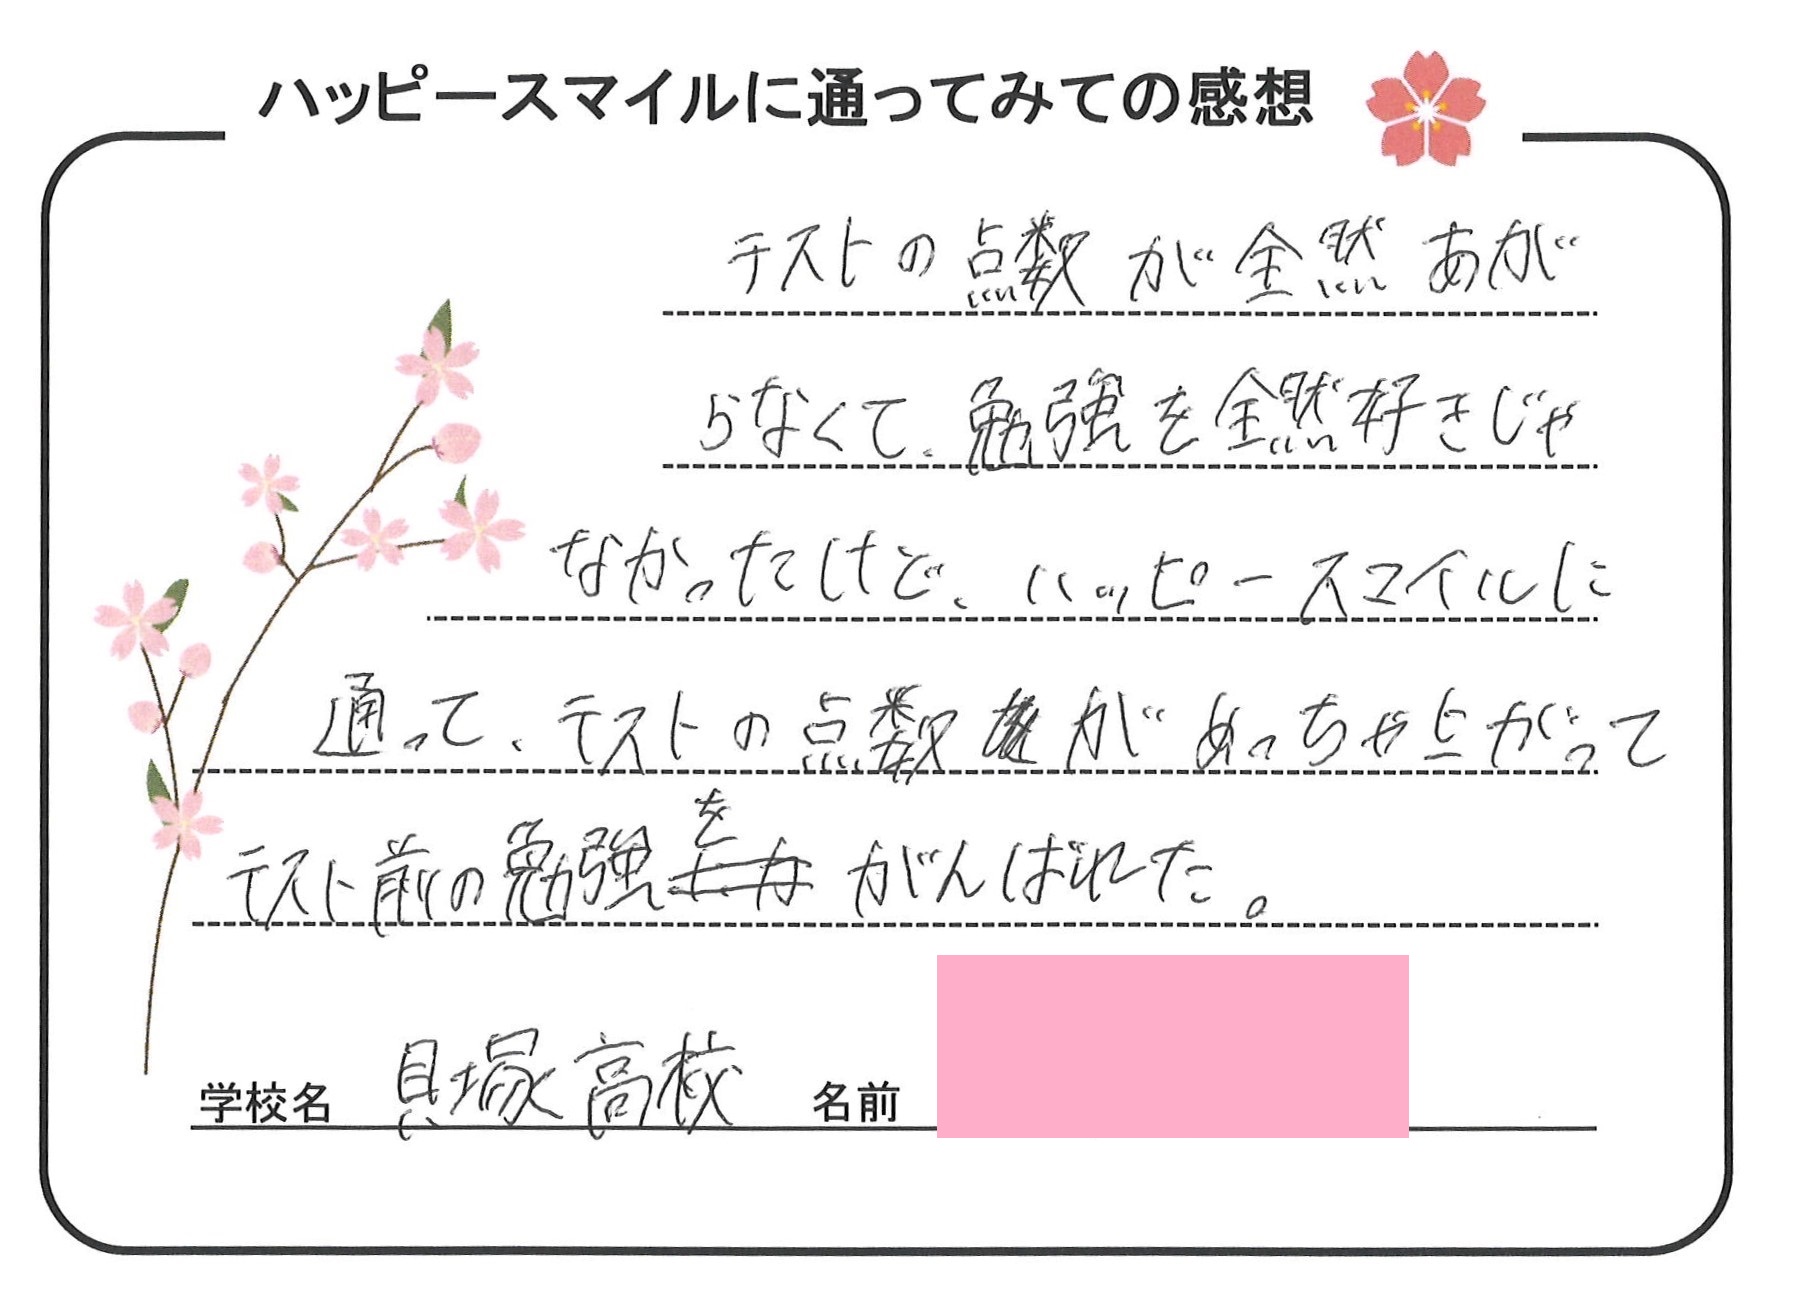 ハッピースマイルに通ってみての感想
テストの点数が全然あが
らなくて、勉強を全然好きじゃ
なかったけど、ハッピースマイルに
通って、テストの点数がめっちゃ上がって
テスト前の勉強をがんばれた。
学校名 貝塚高校 名前